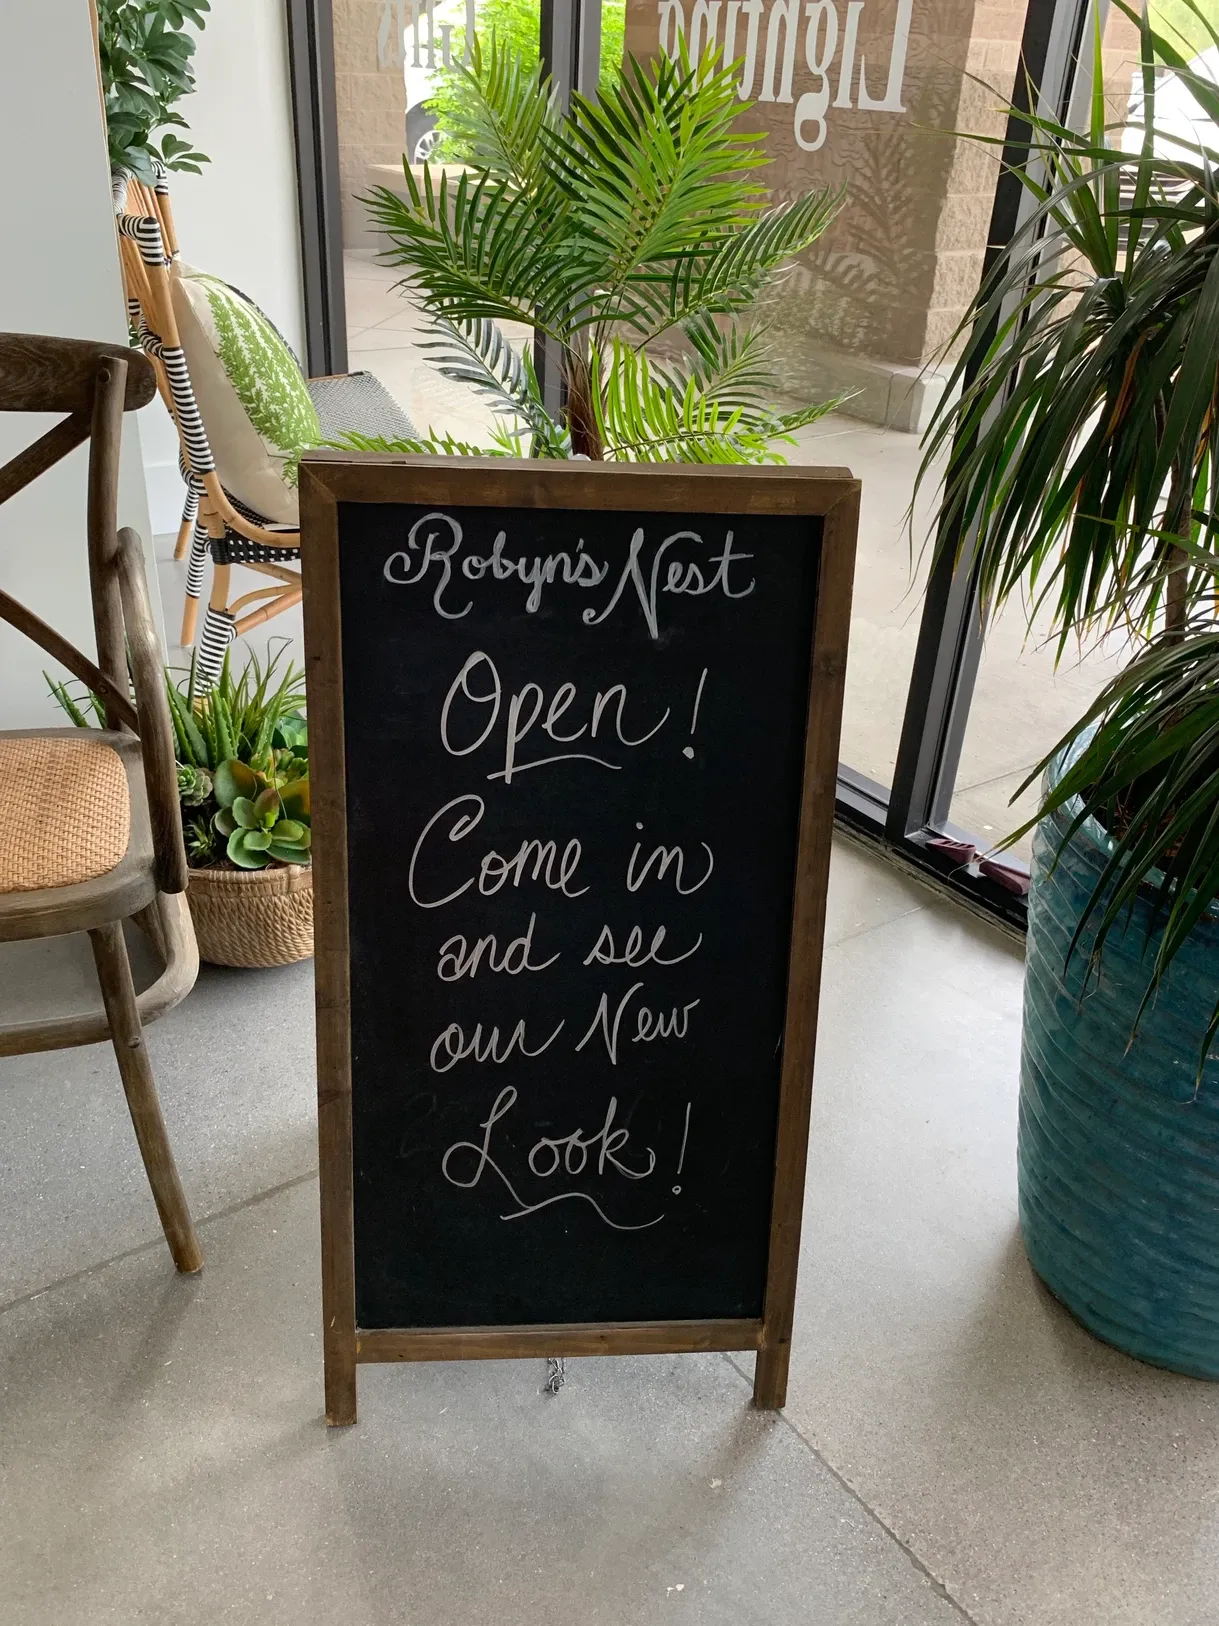 Lighting
Gifts
Robyn's Nest
Open!
Come in
and see
our New
Look!